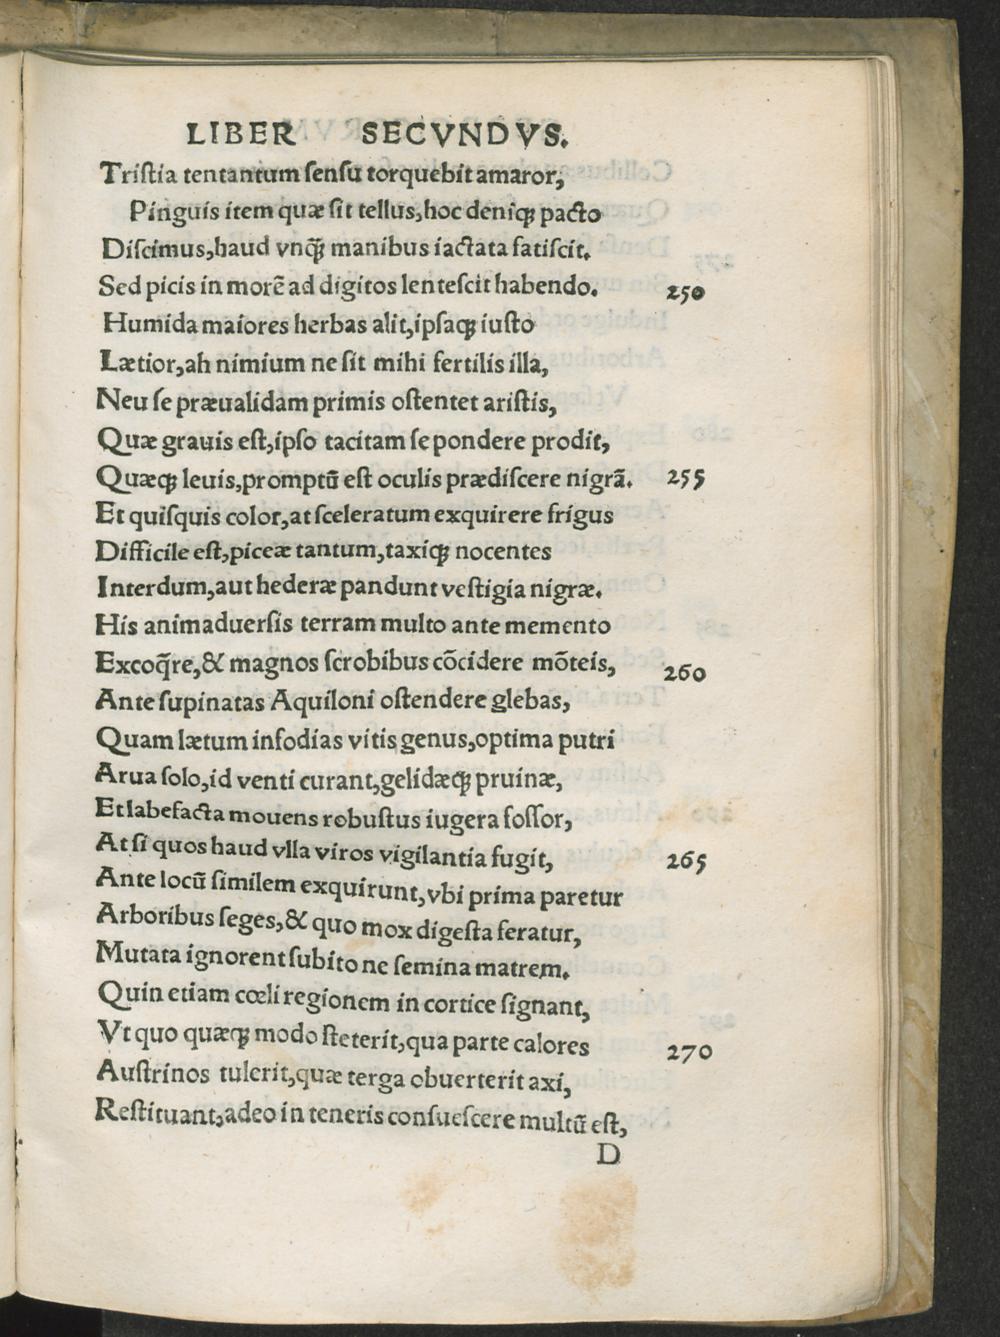 LIBER SECVNDVS.
Tristia tentantum sensu torquebit amaror,
Pinguis item quæ sit tellus, hoc deniqꝫ pacto
Discimus, haud vnq̃ꝫ manibus iactata fatiscit.
Sed picis in morẽ ad digitos lentescit habendo. 250
Humida maiores herbas alit, ipsaqꝫ iusto
Lætior, ah nimium ne sit mihi fertilis illa,
Neu se præualidam primis ostentet aristis,
Quæ grauis est, ipso tacitam se pondere prodit,
Quæqꝫ leuis, promptũ est oculis prædiscere nigrã. 255
Et quisquis color, at sceleratum exquirere frigus
Difficile est, piceæ tantum, taxiqꝫ nocentes
Interdum, aut hederæ pandunt vestigia nigræ.
His animaduersis terram multo ante memento
Excoq̃re, & magnos scrobibus cõcidere mõteis, 260
Ante supinatas Aquiloni ostendere glebas,
Quam lætum infodias vitis genus, optima putri
Arua solo, id venti curant, gelidæqꝫ pruinæ,
Et labefacta mouens robustus iugera fossor,
At si quos haud vlla viros vigilantia fugit, 265
Ante locũ similem exquirunt, vbi prima paretur
Arboribus seges, & quo mox digesta feratur,
Mutata ignorent subito ne semina matrem.
Quin etiam cœli regionem in cortice signant,
Vt quo quæqꝫ modo steterit, qua parte calores 270
Austrinos tulerit, quæ terga obuerterit axi,
Restituant, adeo in teneris consuescere multũ est,
D